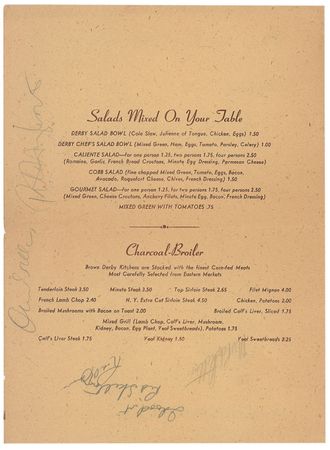 Salads Mixed On Your Table
DERBY SALAD BOWL (Cole Slaw, Julienne of Tongue, Chicken, Eggs) 1.50
DERBY CHEF'S SALAD BOWL (Mixed Green, Ham, Eggs, Tomato, Parsley, Celery) 1.00
CALIENTE SALAD—for one person 1.25, for two persons 1.75, four persons 2.50
(Romaine, Garlic, French Bread Croutons, Minute Egg Dressing, Parmesan Cheese)
COBB SALAD (Fine chopped Mixed Green, Tomato, Eggs, Bacon,
Avocado, Roquefort Cheese, Chives, French Dressing) 1.50
GOURMET SALAD—for one person 1.25, for two persons 1.75, four persons 2.50
(Mixed Green, Cheese Croutons, Anchovy Filets, Minute Egg, Bacon, French Dressing)
MIXED GREEN WITH TOMATOES .75
Charcoal-Broiler
Brown Derby Kitchens are Stocked with the finest Corn-fed Meats
Most Carefully Selected from Eastern Markets
Tenderloin Steak 3.50 Minute Steak 3.50 Top Sirloin Steak 2.65 Filet Mignon 4.00
French Lamb Chop 2.40 N. Y. Extra Cut Sirloin Steak 4.50 Chicken, Potatoes 2.00
Broiled Mushrooms with Bacon on Toast 2.00 Broiled Calf's Liver, Sliced 1.75
Mixed Grill (Lamb Chop, Calf's Liver, Mushroom,
Kidney, Bacon, Egg Plant, Veal Sweetbreads), Potatoes 1.75
Calf's Liver Steak 1.75 Veal Kidney 1.50 Veal Sweetbreads 2.25
Red Skelton